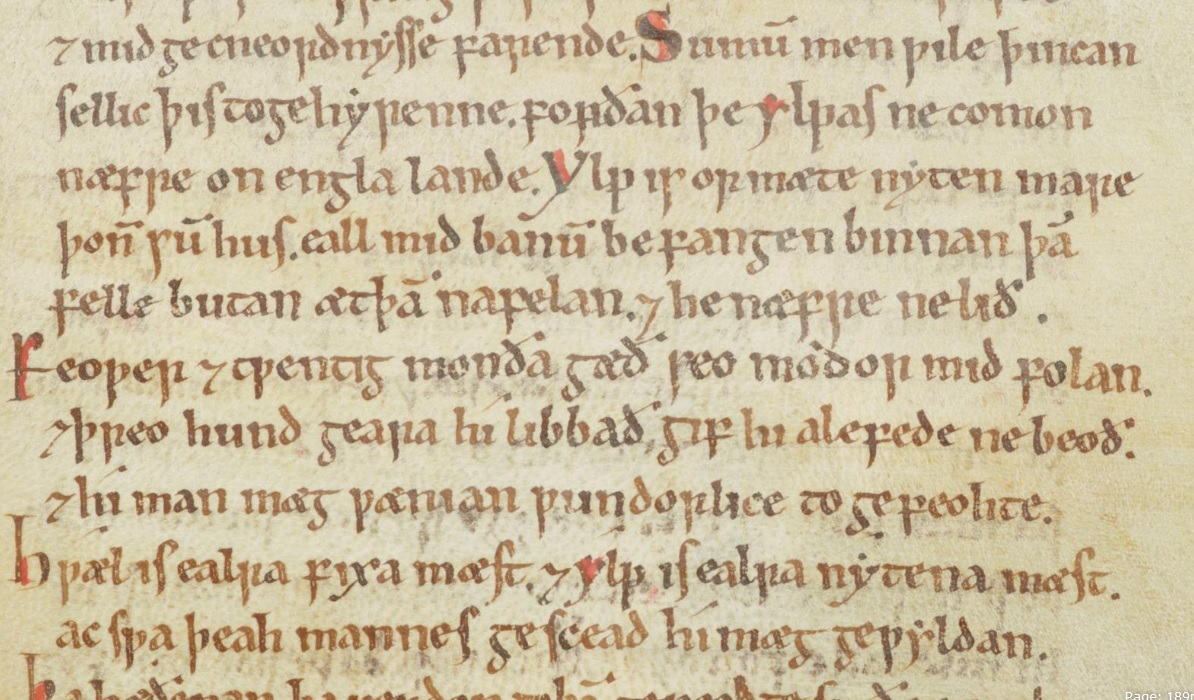 ⁊ mid gecneordnysse farende. Sumū men ƿile þincan
sellic þis to gehyrenne. forðan þe ylpas ne comon
næfre on engla lande. Ylp is ormæte nyten mare
þoñ sū hus. eall mid banū befangen binnan þā
felle butan æt þā nafelan. ⁊ he næfre ne lið.
Feoƿer ⁊ tƿentig monða gæð seo modor mid folan.
⁊ þreo hund geara hi libbað gif hi alefede ne beoð.
⁊ hi man mæg ƿænian ƿundorlice to gefeohte.
Hƿæl is ealra fixa mæst. ⁊ ylp is ealra nytena mæst.
ac sƿa þeah mannes gescead hi mæg geƿyldan.
Page: 189r